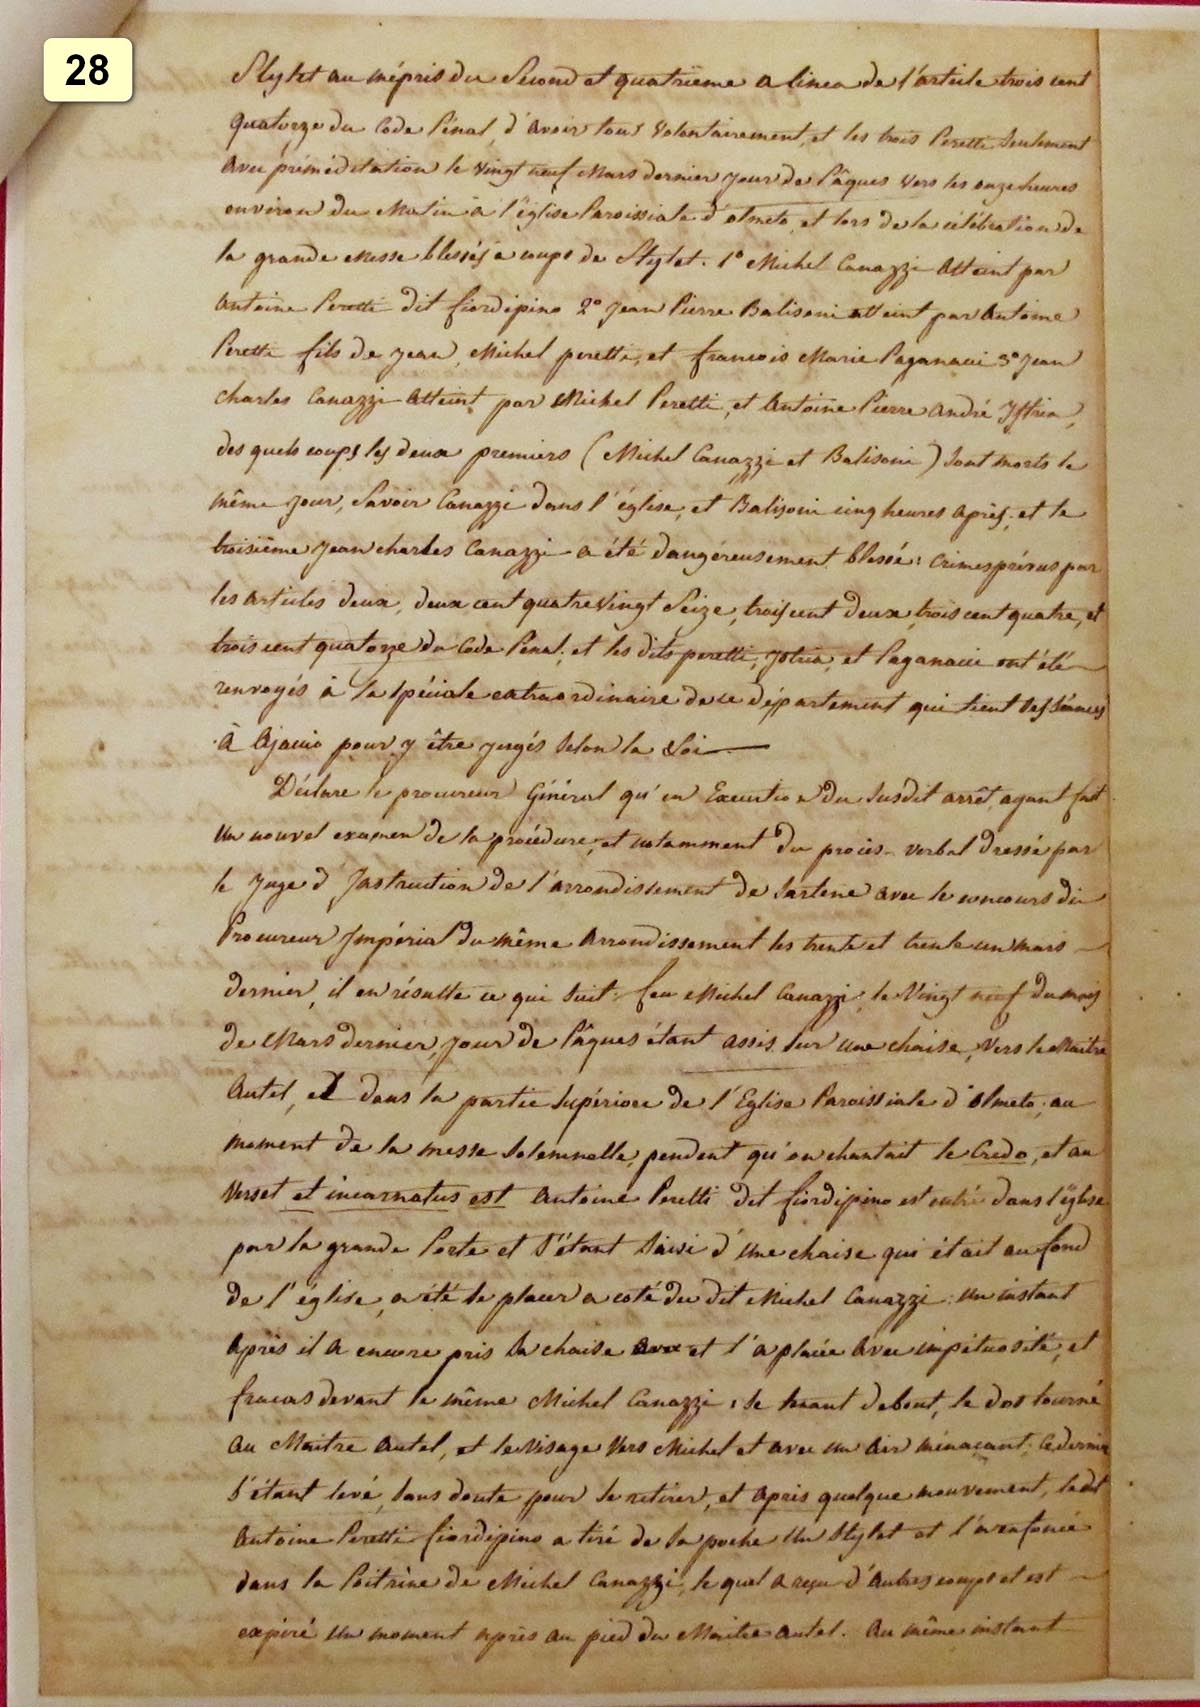 28
Stylet au mépris du Second et quatrième a linea de l'article trois cent
quatorze du Code Pénal, d'avoir tous volontairement, et les trois Peretti Seulement
avec préméditation le vingt neuf Mars dernier jour de Pâques vers les onze heures
environ du Matin à l'église Paroissiale d'olmeto, et lors de la célébration de
la grande Messe blessés à coups de Stylet. 1° Michel Canazzi Atteint par
Antoine Peretti dit fiordipino 2° Jean Pierre Balisoni atteint par Antoine
Peretti fils de Jean, Michel peretti, et francois Marie Paganacci 3° Jean
Charles Canazzi Atteint par Michel Peretti, et Antoine Pierre André Istria,
des quels coups les deux premiers (Michel Canazzi et Balisoni) Sont morts le
même Jour, Savoir Canazzi dans l'église, et Balisoni cinq heures Après, et le
troisième Jean charles Canazzi a été dangéreusement blessé: Crimes prévus par
les articles deux, deux cent quatre Vingt Seize, trois cent deux, trois cent quatre, et
trois cent quatorze du Code Pénal, et les dits peretti, Istria, et Paganacci ont été
renvoyés à la Spéciale extraordinaire de ce département qui tient Ses Séances
À Ajaccio pour y être jugés Selon la Loi
Déclare le procureur Général qu'en Execution du Susdit arrêt, ayant fait
Un nouvel examen de la procédure, et notamment du procès-verbal dressé par
le Juge d'Instruction de l'arrondissement de Sartene avec le concours du
Procureur Impérial du même Arrondissement les trente et trente un mars
dernier, il en résulte ce qui Suit. feu Michel Canazzi, le Vingt neuf du mois
de Mars dernier, jour de Pâques étant assis Sur une chaise, Vers le Maitre
Autel, et dans la partie Supériore de l'Eglise Paroissiale d'olmeto, au
moment de la messe Solemnelle, pendent qu'on chantait le Credo, et au
Verset et incarnatus est Antoine Peretti dit fiordipino est entré dans l'église
par la grande Porte et S'étant Saisi d'une chaise qui était au fond
de l'église, a été la placer a coté du dit Michel Canazzi. Un instant
Après il a encore pris la chaise et l'a placée avec impétuosité, et
fracas devant le même Michel Canazzi, Se tenant debout, le dos tourné
au Maitre Autel, et le Visage Vers Michel et avec un Air ménacant. Ce dernier
S'étant levé, Sans doute pour Se retirer, et Après quelque mouvement, ledit
Antoine Peretti fiordipino a tiré de Sa poche Un Stylet et l'a enfoncé
dans la Poitrine de Michel Canazzi, le quel a reçu d'autres coups et est
expiré Un moment après au pied du Maitre Autel. Au même instant